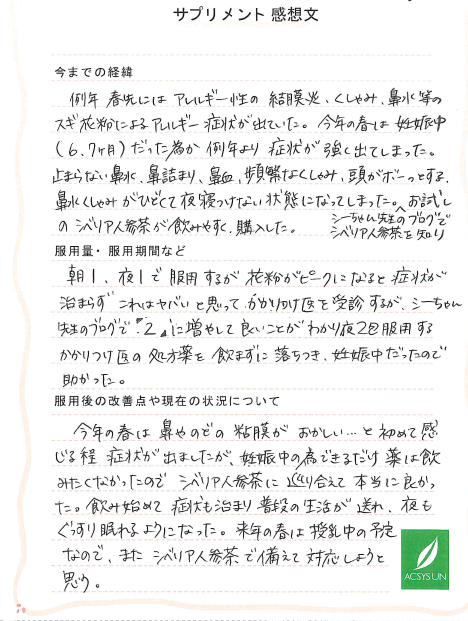 サプリメント 感想文
今までの経緯
例年 春先には アレルギー性の 結膜炎、くしゃみ、鼻水等の
スギ花粉によるアレルギー 症状が出ていた。今年の春は 妊娠中
(6.7ヶ月)だった為か 例年より 症状が 強く出てしまった。
止まらない鼻水、鼻詰まり、鼻血、頻繁なくしゃみ、頭がボーっとする、
鼻水くしゃみがひどくて夜寝つけない状態になってしまった。お試し
シーちゃん先生のブログで
の シベリア人参茶が飲みやすく、購入した。
シベリア人参茶を知り
服用量・服用期間など
朝1、夜1で 服用するが 花粉がピークになると 症状が
治まらず これはヤバいと思って かかりつけ医を受診するが、シーちゃん
先生のブログで『2』に増やして良いことがわかり夜2包服用する
かかりつけ医の 処方薬を 飲まずに 落ちつき、妊娠中だったので
助かった。
服用後の改善点や現在の状況について
今年の春は 鼻やのどの 粘膜が おかしい…と 初めて感
じる程 症状が出ましたが、妊娠中の為できるだけ 薬は飲
みたくなかったので シベリア人参茶に 巡り合えて 本当に良かっ
た。飲み始めて 症状も治まり 普段の生活が 送れ、夜も
ぐっすり眠れるようになった。来年の春は 授乳中の予定
なので、また シベリア人参茶で備えて 対応しようと
思う。
ACSYSUN